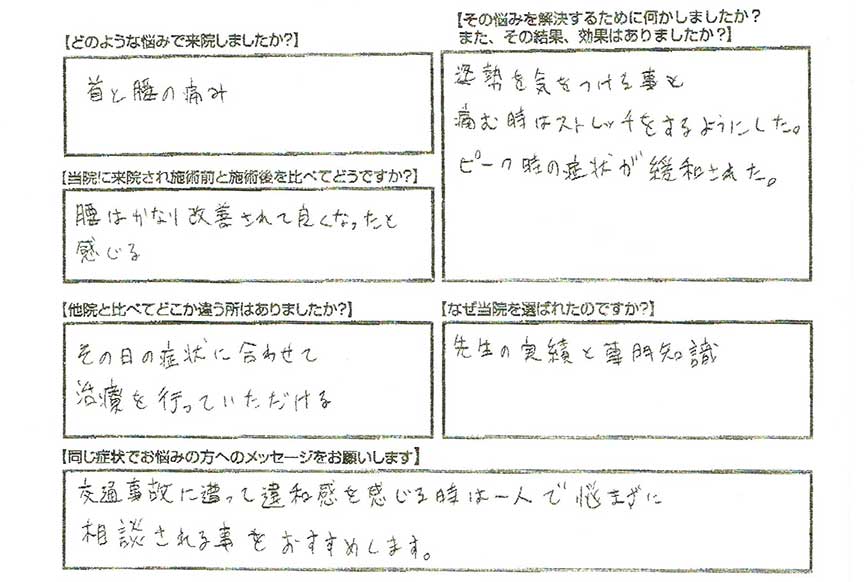 【どのような悩みで来院しましたか?】
首と腰の痛み
【その悩みを解決するために何かしましたか?
また、その結果、効果はありましたか?】
姿勢を気をつける事と
痛む時はストレッチをするようにした。
ピーク時の症状が緩和された。
【当院に来院され施術前と施術後を比べてどうですか?】
腰はかなり改善されて良くなったと
感じる
【他院と比べてどこか違う所はありましたか?】
その日の症状に合わせて
治療を行っていただける
【なぜ当院を選ばれたのですか?】
先生の実績と専門知識
【同じ症状でお悩みの方へのメッセージをお願いします】
交通事故に遭って違和感を感じる時は一人で悩まずに
相談される事をおすすめします。